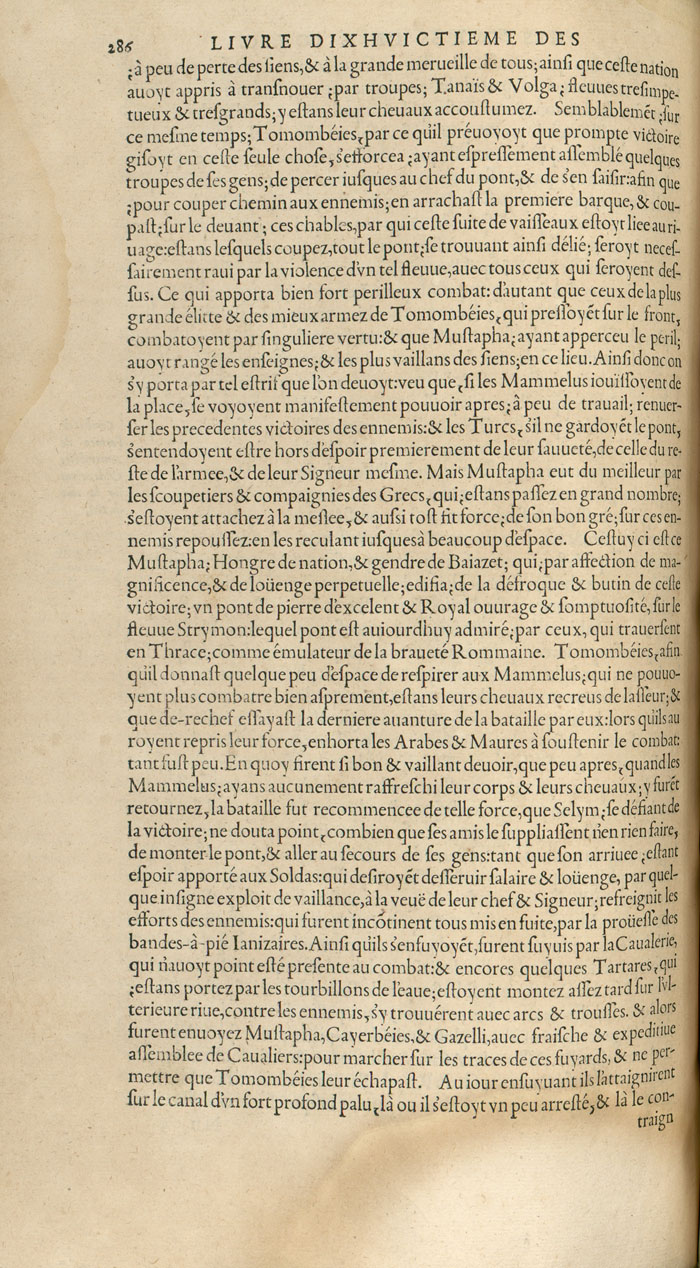 286 LIVRE DIXHVICTIEME DES
¿à peu de perte des siens,& à la grande merueille de tous; ainsi que ceste nation
auoyt appris à transnouer ¿par troupes; Tanaïs & Volga ¿ fleuues tresimpe-
tueux & tresgrands; y estans leur cheuaux accoustumez. Semblablemẽt ¿sur
ce mesme temps; Tomombéies, par ce qu'il préuoyoyt que prompte victoire
gisoyt en ceste seule chose, s'efforcea ¿ayant espressement assemblé quelques
troupes de ses gens; de percer iusques au chef du pont,& de s'en saisir:afin que
¿pour couper chemin aux ennemis; en arrachast la premiere barque, & cou-
past ¿sur le deuant; ces chables, par qui ceste suite de vaisseaux estoyt liee au ri-
uage:estans lesquels coupez, tout le pont ¿se trouuant ainsi délié; seroyt neces-
sairement raui par la violence d'vn tel fleuue, auec tous ceux qui seroyent des-
sus. Ce qui apporta bien fort perilleux combat: d'autant que ceux de la plus
grande élitte & des mieux armez de Tomombéies, qui pressoyẽt sur le front,
combatoyent par singuliere vertu:& que Mustapha ¿ayant apperceu le peril;
auoyt rangé les enseignes ¿& les plus vaillans des siens; en ce lieu. Ainsi donc on
s'y porta par tel estrif que l'on deuoyt: veu que, si les Mammelus iouïssoyent de
la place, se voyoyent manifestement pouuoir apres ¿à peu de trauail; renuer-
ser les precedentes victoires des ennemis:& les Turcs, s'il ne gardoyẽt le pont,
s'entendoyent estre hors d'espoir premierement de leur sauueté, de celle du re-
ste de l'armee,& de leur Signeur mesme. Mais Mustapha eut du meilleur par
les scoupetiers & compaignies des Grecs, qui ¿estans passez en grand nombre;
s'estoyent attachez à la meslee, & aussi tost fit force ¿de son bon gré; sur ces en-
nemis repoussez:en les reculant iusques à beaucoup d'espace. Cestuy ci est ce
Mustapha ¿Hongre de nation,& gendre de Baiazet; qui ¿par affection de ma-
gnificence,& de loüenge perpetuelle; edifia ¿de la défroque & butin de ceste
victoire; vn pont de pierre d'excelent & Royal ouurage & somptuosité, sur le
fleuue Strymon:lequel pont est auiourdhuy admiré ¿par ceux, qui trauersent
en Thrace; comme émulateur de la braueté Rommaine. Tomombéies, afin
qu'il donnast quelque peu d'espace de respirer aux Mammelus ¿qui ne pouuo-
yent plus combatre bien asprement, estans leurs cheuaux recreus de lasseur;&
que de-rechef essayast la derniere auanture de la bataille par eux:lors qu'ils au
royent repris leur force, enhorta les Arabes & Maures à soustenir le combat:
tant fust peu. En quoy firent si bon & vaillant deuoir, que peu apres, quand les
Mammelus ¿ayans aucunement raffreschi leur corps & leurs cheuaux; y furẽt
retournez, la bataille fut recommencee de telle force, que Selym ¿se défiant de
la victoire; ne douta point, combien que ses amis le suppliassent n'en rien faire,
de monter le pont,& aller au secours de ses gens:tant que son arriuee ¿estant
espoir apporté aux Soldas:qui desiroyẽt desseruir salaire & loüenge, par quel-
que insigne exploit de vaillance, à la veuë de leur chef & Signeur; refreignit les
efforts des ennemis:qui furent incõtinent tous mis en fuite, par la proüesse des
bandes-à-pié Ianizaires. Ainsi qu'ils s'enfuyoyẽt, furent suyuis par la Caualerie,
qui n'auoyt point esté presente au combat:& encores quelques Tartares, qui
¿estans portez par les tourbillons de l'eaue; estoyent montez assez tard sur l'vl-
terieure riue, contre les ennemis, s'y trouuérent auec arcs & trousses. & alors
furent enuoyez Mustapha, Cayerbéies,& Gazelli, auec fraische & expeditiue
assemblee de Caualiers:pour marcher sur les traces de ces fuyards, & ne per-
mettre que Tomombéies leur échapast. Au iour ensuyuant ils l'attaignirent
sur le canal d'vn fort profond palu, là ou il s'estoyt vn peu arresté, & là le con-
traign